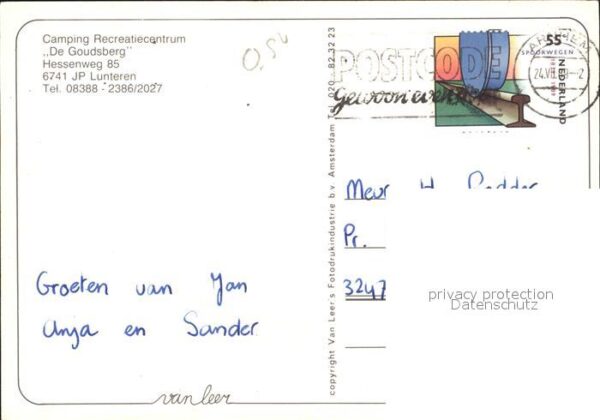 Camping Recreatiecentrum
„De Goudsberg"
Hessenweg 85
6741 JP Lunteren
Tel. 08388 - 2386/2027
POSTCODE
Gewoon even
55
SPOORWEGEN
NEDERLAND
ARNHEM
24.VII
copyright Van Leer's Fotodrukindustrie b.v. Amsterdam Tel. 020 - 82 23 23
Mevr H
Pr.
3247
Groeten van Jan
Anja en Sander
privacy protection
Datenschutz
van leer